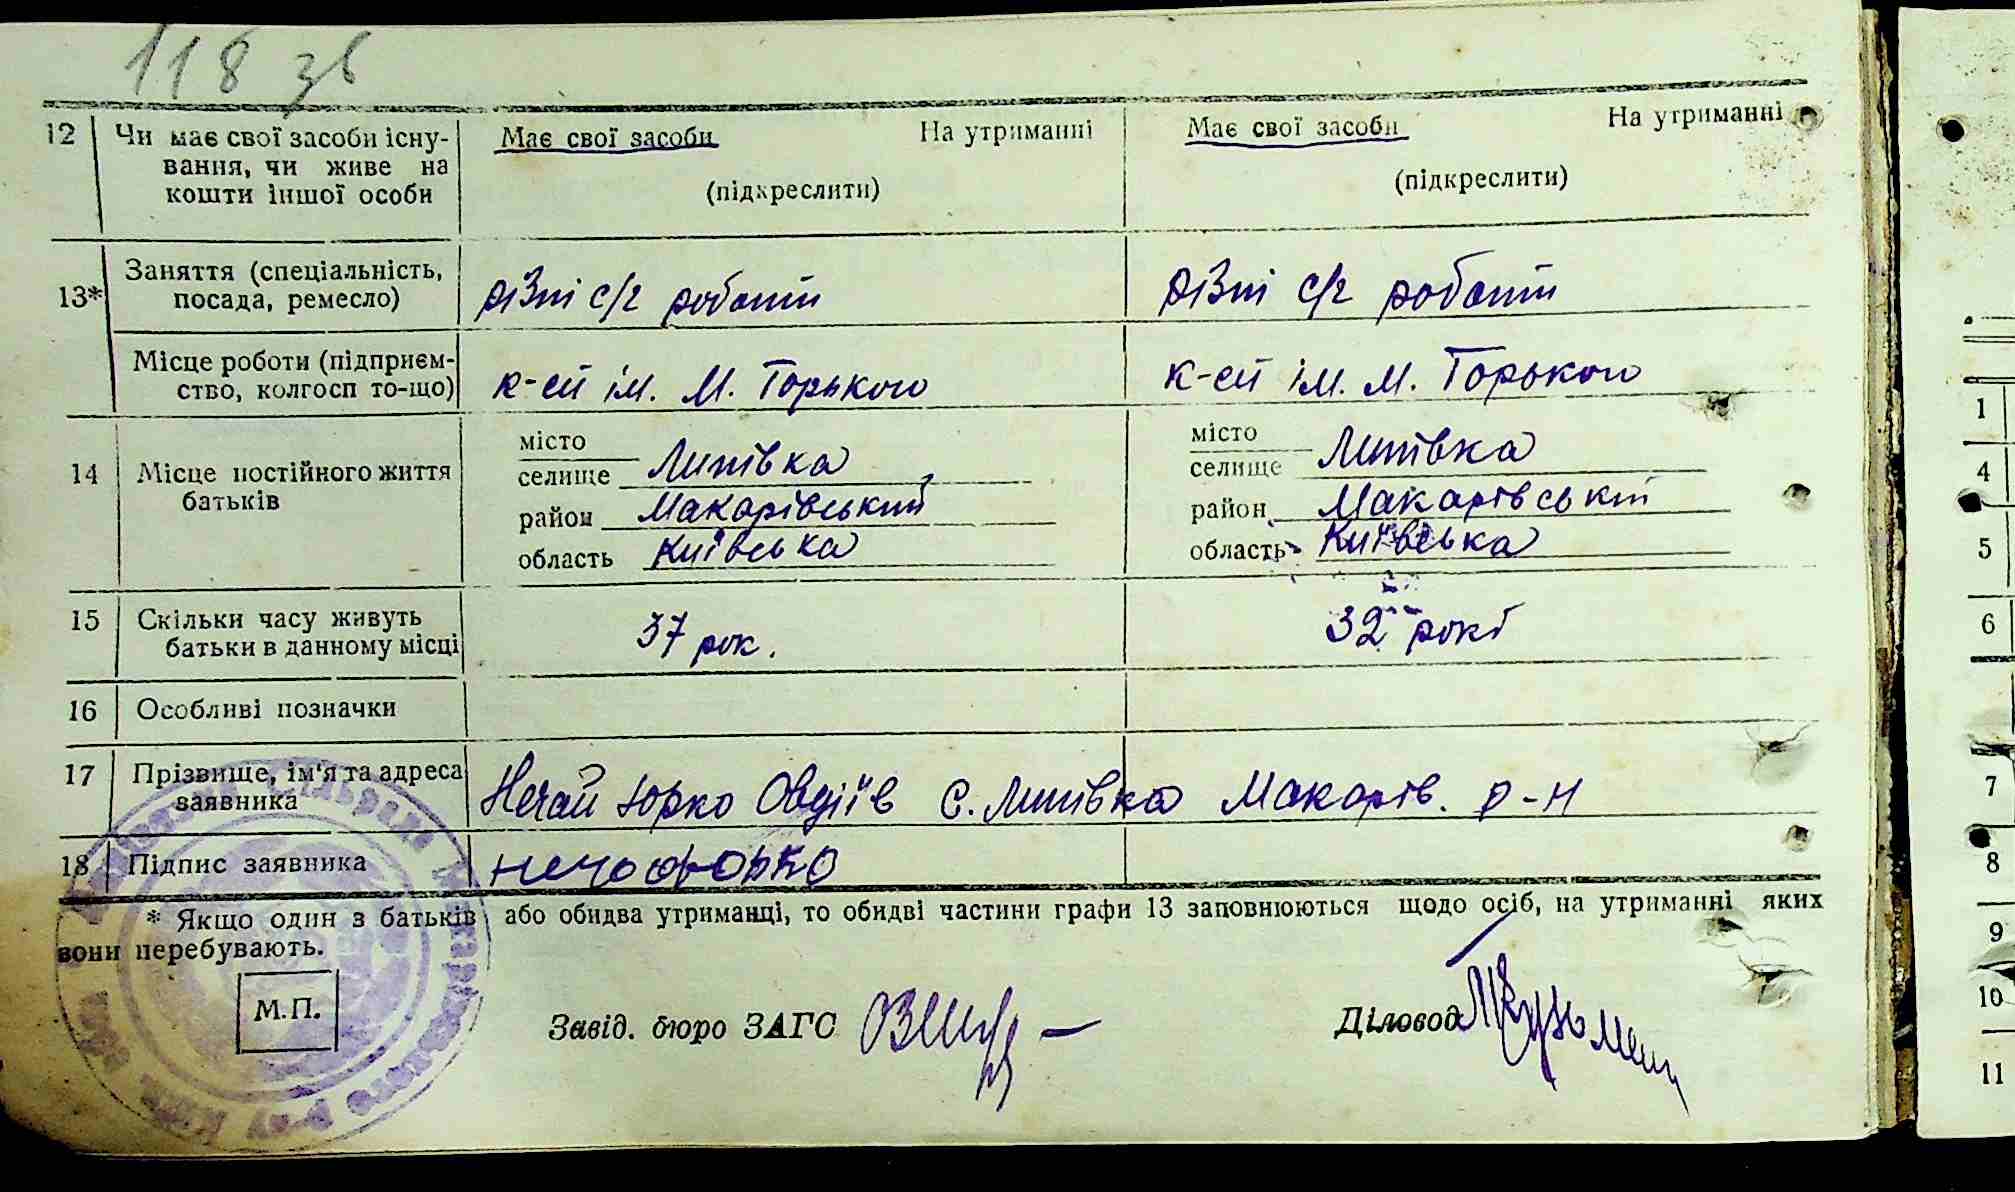 118 зв
12 Чи має свої засоби існу- Має свої засоби На утриманні Має свої засоби На утриманні
вання, чи живе на
кошти іншої особи (підкреслити) (підкреслити)
13* Заняття (спеціальність,
посада, ремесло) різні с/г роботи різні с/г роботи
Місце роботи (підприєм-
ство, колгосп то-що) к-сп ім. М. Горького к-сп ім. М. Горького
14 Місце постійного життя
батьків
місто місто
селище Липівка селище Липівка
район Макарівський район Макарівський
область Київська область Київська
15 Скільки часу живуть
батьки в данному місці 37 рок. 32 рокі
16 Особливі позначки
17 Прізвище, ім'я та адреса
заявника Нечай Юрко Овдіїв с. Липівка Макарів. р-н
18 Підпис заявника
* Якщо один з батьків або обидва утриманці, то обидві частини графи 13 заповнюються щодо осіб, на утриманні яких
вони перебувають.
М.П.
Завід. бюро ЗАГС Діловод
1
4
5
6
7
8
9
10
11